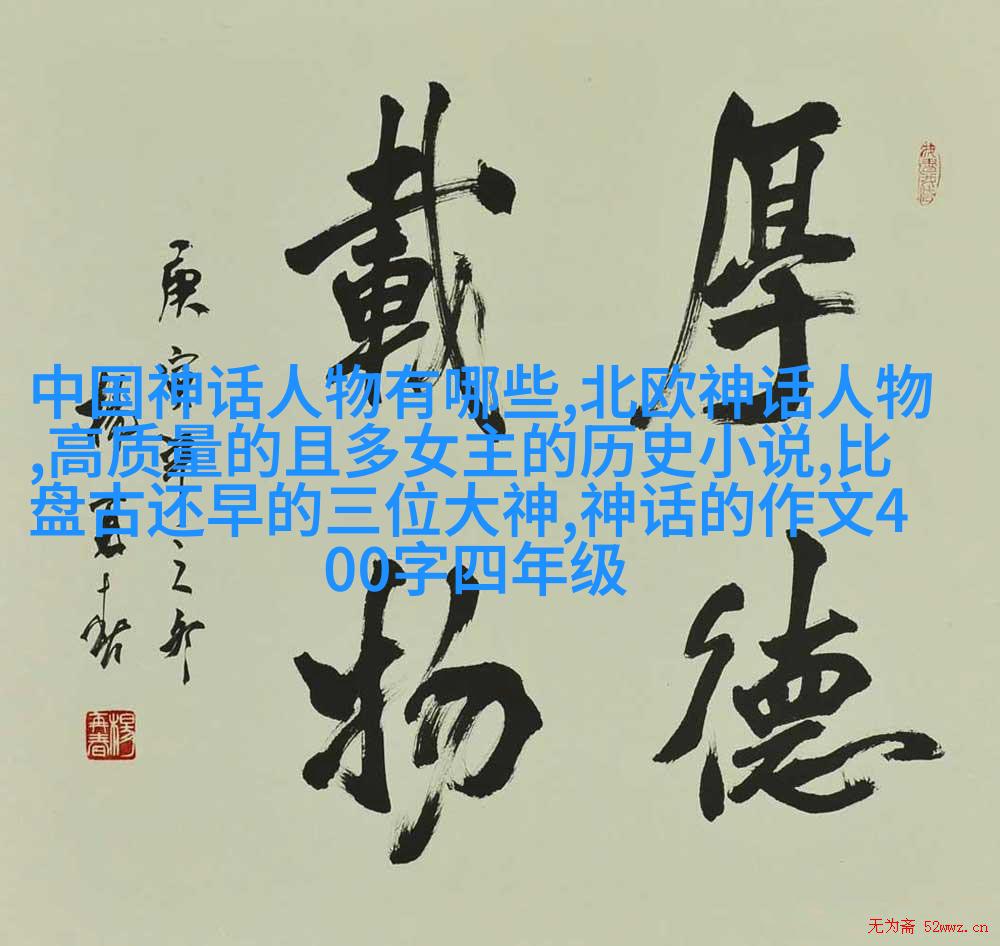 厚德
載物
庚寅年之春
楊再春
楊再春
中国神话人物有哪些,北欧神话人物
,高质量的且多女主的历史小说,比
盘古还早的三位大神,神话的作文4
00字四年级
无为斋 52wwz.cn